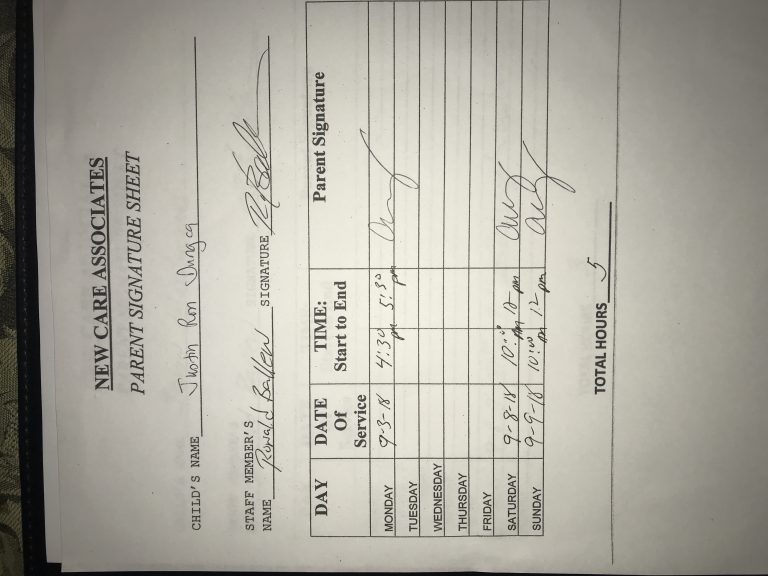 NEW CARE ASSOCIATES
PARENT SIGNATURE SHEET
CHILD'S NAME Justin Ron Dungca
STAFF MEMBER'S
NAME Ronald Ballew SIGNATURE
DAY DATE Of Service TIME: Start to End Parent Signature
MONDAY 9-3-18 4:30 pm 5:30 pm
TUESDAY
WEDNESDAY
THURSDAY
FRIDAY
SATURDAY 9-8-18 10:00 am 12 pm
SUNDAY 9-9-18 10:00 12 pm
TOTAL HOURS 5